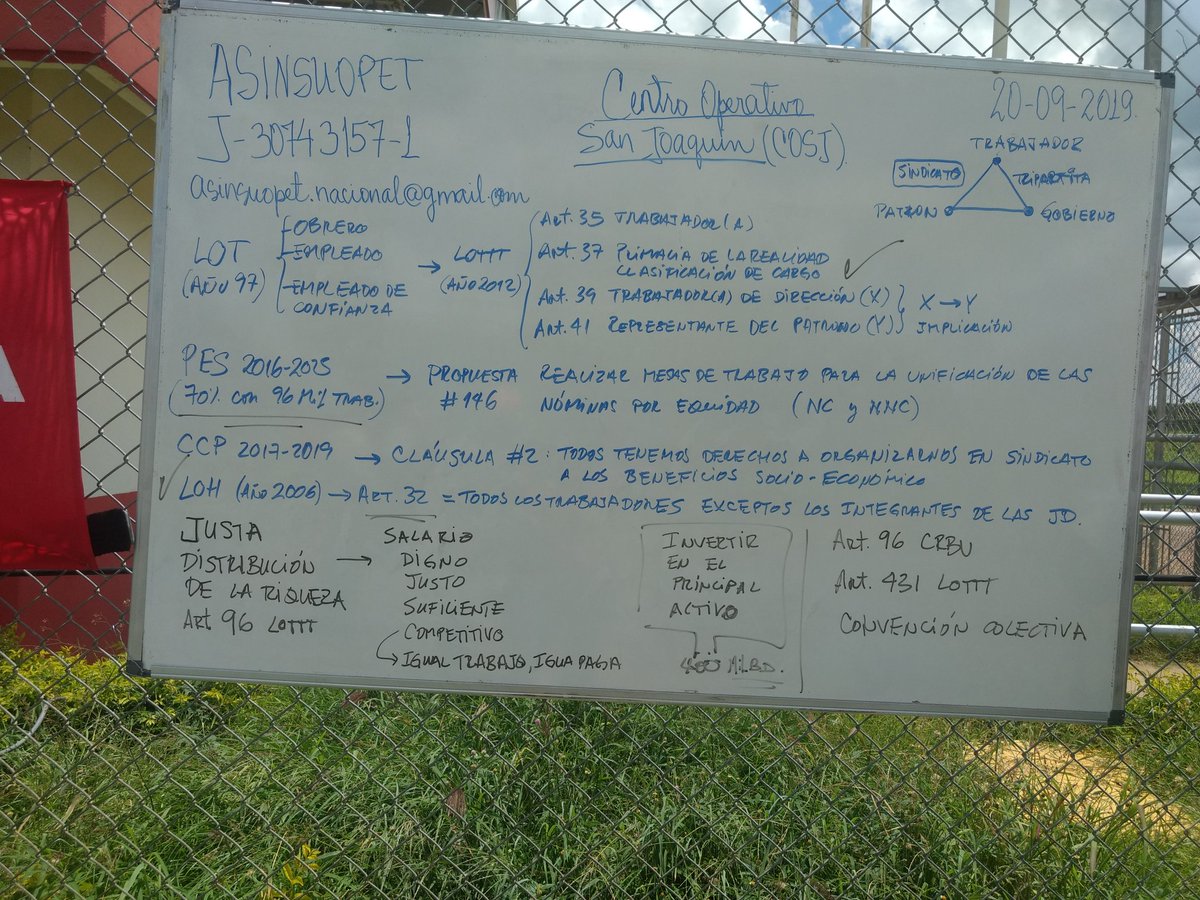 ASINSUOPET
J-30743157-1
asinsuopet.nacional@gmail.com
Centro Operativo
San Joaquín (COSJ).
20-09-2019.
TRABAJADOR
SINDICATO
TRIPARTITA
PATRON
GOBIERNO
LOT
(AÑO 97)
OBRERO
EMPLEADO
EMPLEADO DE
CONFIANZA
→ LOTTT
(AÑO 2012)
Art. 35 TRABAJADOR(A)
Art. 37 PRIMACIA DE LA REALIDAD
CLASIFICACIÓN DE CARGO
Art. 39 TRABAJADOR(A) DE DIRECCIÓN (X)
Art. 41 REPRESENTANTE DEL PATRONO (Y)
X → Y
IMPLICACIÓN
PES 2016-2025
(70% con 96 Mil TRAB.)
→ PROPUESTA
#146
REALIZAR MESAS DE TRABAJO PARA LA UNIFICACIÓN DE LAS
NÓMINAS POR EQUIDAD (NC y NNC)
CCP 2017-2019 → CLÁUSULA #2: TODOS TENEMOS DERECHOS A ORGANIZARNOS EN SINDICATO
A LOS BENEFICIOS SOCIO-ECONÓMICO
LOH (AÑO 2006) → ART. 32 = TODOS LOS TRABAJADORES EXCEPTOS LOS INTEGRANTES DE LAS JD.
JUSTA
DISTRIBUCIÓN →
DE LA RIQUEZA
Art 96 LOTTT
SALARIO
DIGNO
JUSTO
SUFICIENTE
COMPETITIVO
→ IGUAL TRABAJO, IGUA PAGA
INVERTIR
EN EL
PRINCIPAL
ACTIVO
MILBD.
Art. 96 CRBV
Art. 431 LOTTT
CONVENCIÓN COLECTIVA
A